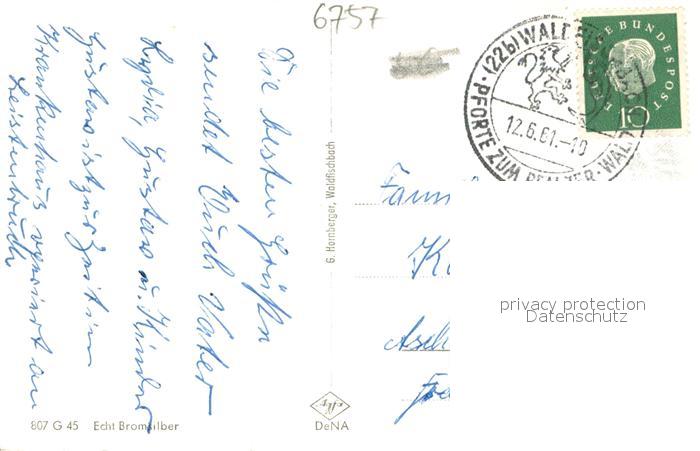 6757
Die besten Grüße
sendet Euch Vater
Lydia, Gustav u. Kinder
Gustav ist zur Zeit im
Krankenhaus operiert an
Leistenbruch
G. Hornberger, Waldfischbach
(22b) WALDFISCHBACH
PFORTE ZUM PFÄLZER WALD
12.6.61.-10
DEUTSCHE BUNDESPOST
10
Fam
privacy protection
Datenschutz
807 G 45 Echt Bromsilber
DeNA